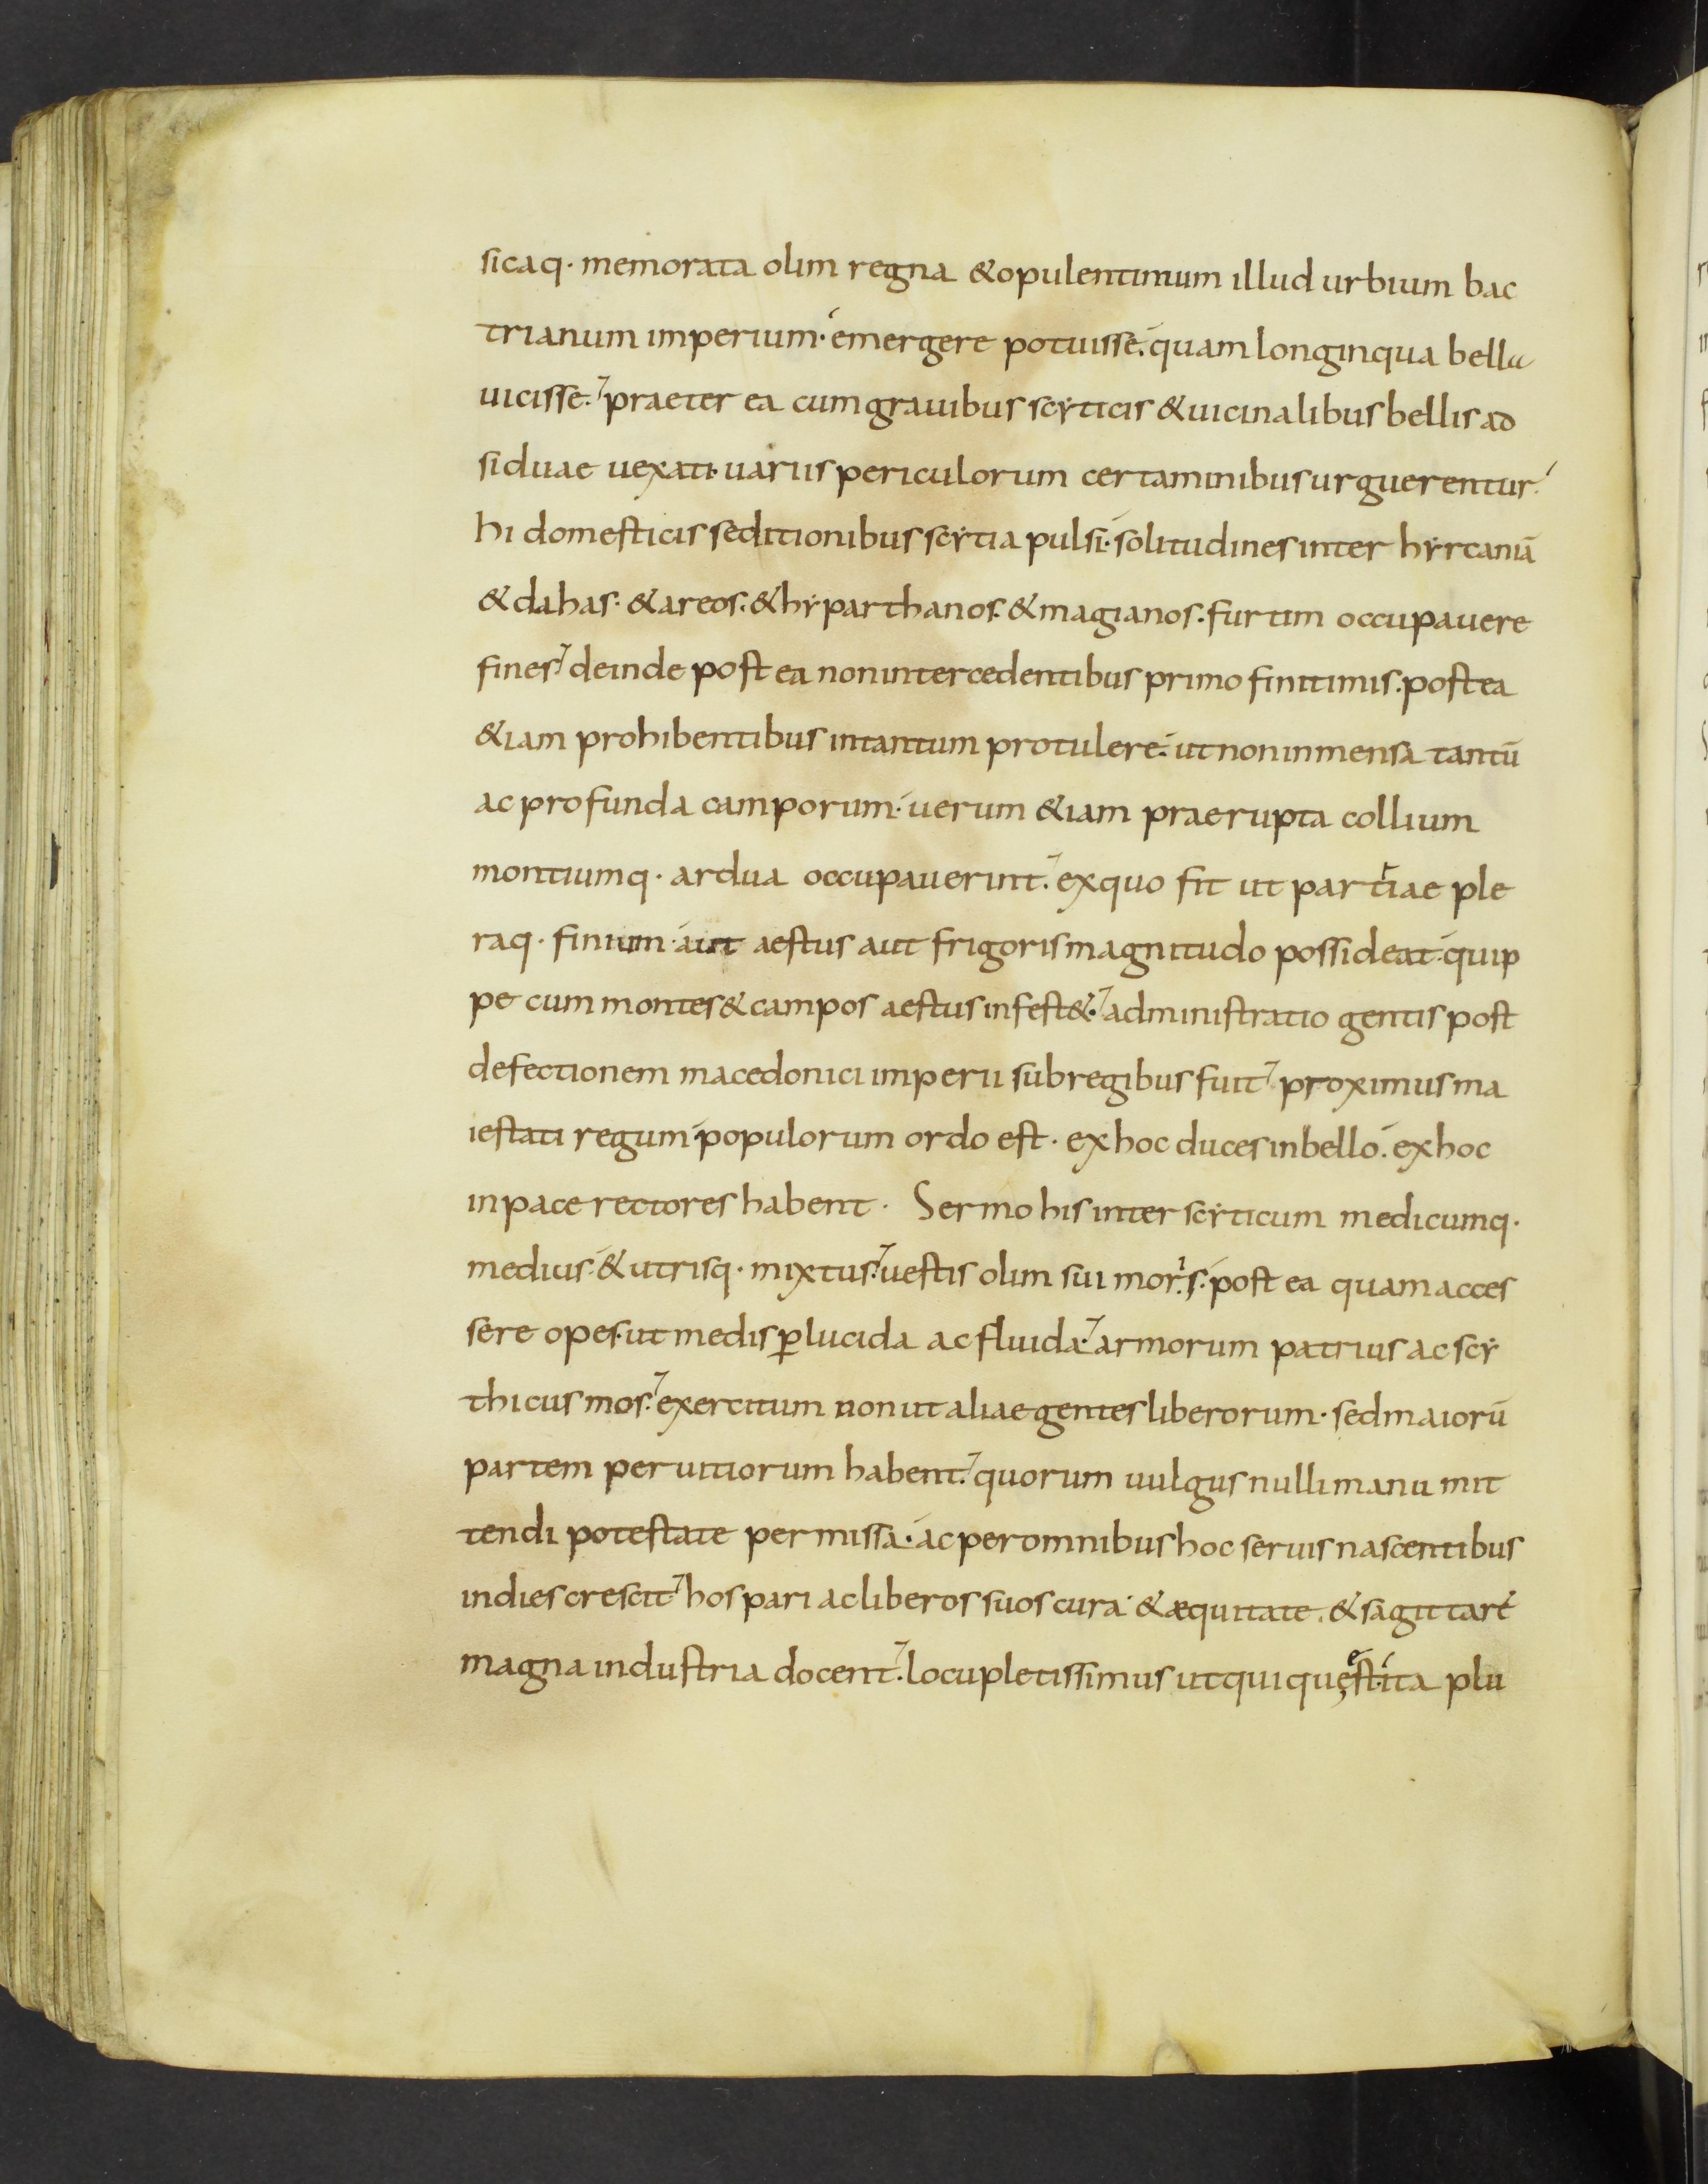 sicaq· memorata olim regna &opulentimum illud urbium bac
trianum imperium· emergere potuisse. quam longinqua bella
uicisse. praeter ea cum grauibus scẏticis &uicinalibus bellis ad
siduae uexati· uariis periculorum certaminibus urguerentur.
hi domesticis seditionibus scẏtia pulsi· solitudines inter hẏrcaniā
&dahas· &areos· &hẏparthanos· &magianos· furtim occupauere
fines· deinde post ea non intercedentibus primo finitimis· postea
&iam prohibentibus intantum protulere· ut non inmensa tantū
ac profunda camporum· uerum &iam praerupta collium
montiumq· ardua occupauerint· exquo fit ut partiae ple
raq· finium· aut aestus aut frigoris magnitudo possideat· quip
pe cum montes &campos aestus infest&· administratio gentis post
defectionem macedonici imperii subregibus fuit· proximus ma
iestati regum populorum ordo est· exhoc duces inbello· exhoc
inpace rectores habent· Sermo his inter scẏticum medicumq·
medius· &utrisq· mixtus· uestis olim sui moris· post ea quam acces
sere opes· ut medis ꝑlucida ac fluida· armorum patrius ac scẏ
thicus mos· exercitum non ut aliae gentes liberorum· sed maiorū
partem peruitiorum habent· quorum uulgus nulli manu mit
tendi potestate permissa· ac per omnibus hoc seruis nascentibus
indies crescit· hos pari ac liberos suos cura· &aequitate· &sagittare
magna industria docent· locupletissimus ut quique est· ita plu